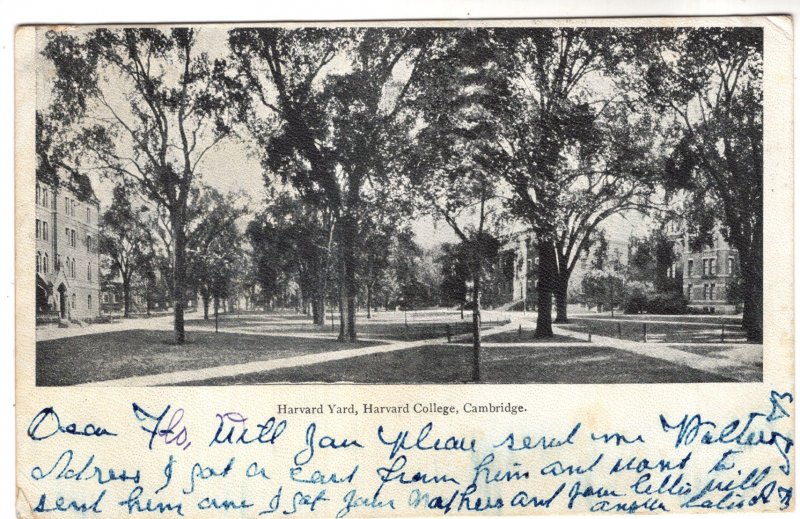 Harvard Yard, Harvard College, Cambridge.
Dear Flo, Will you please send me Walters
Address I got a card from him and want to
send him one I got your Mothers and your letter will
answer later